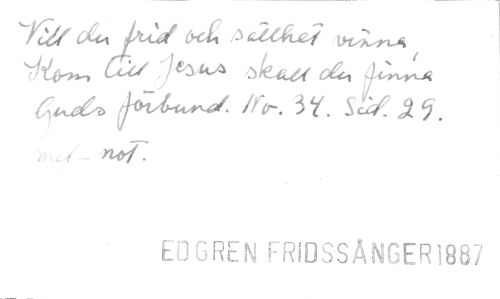 Vill du frid och sällhet vinna,
Kom till Jesus skall du finna
Guds förbund. No. 34. Sid. 29.
med not.
EDGREN FRIDSSÅNGER 1887